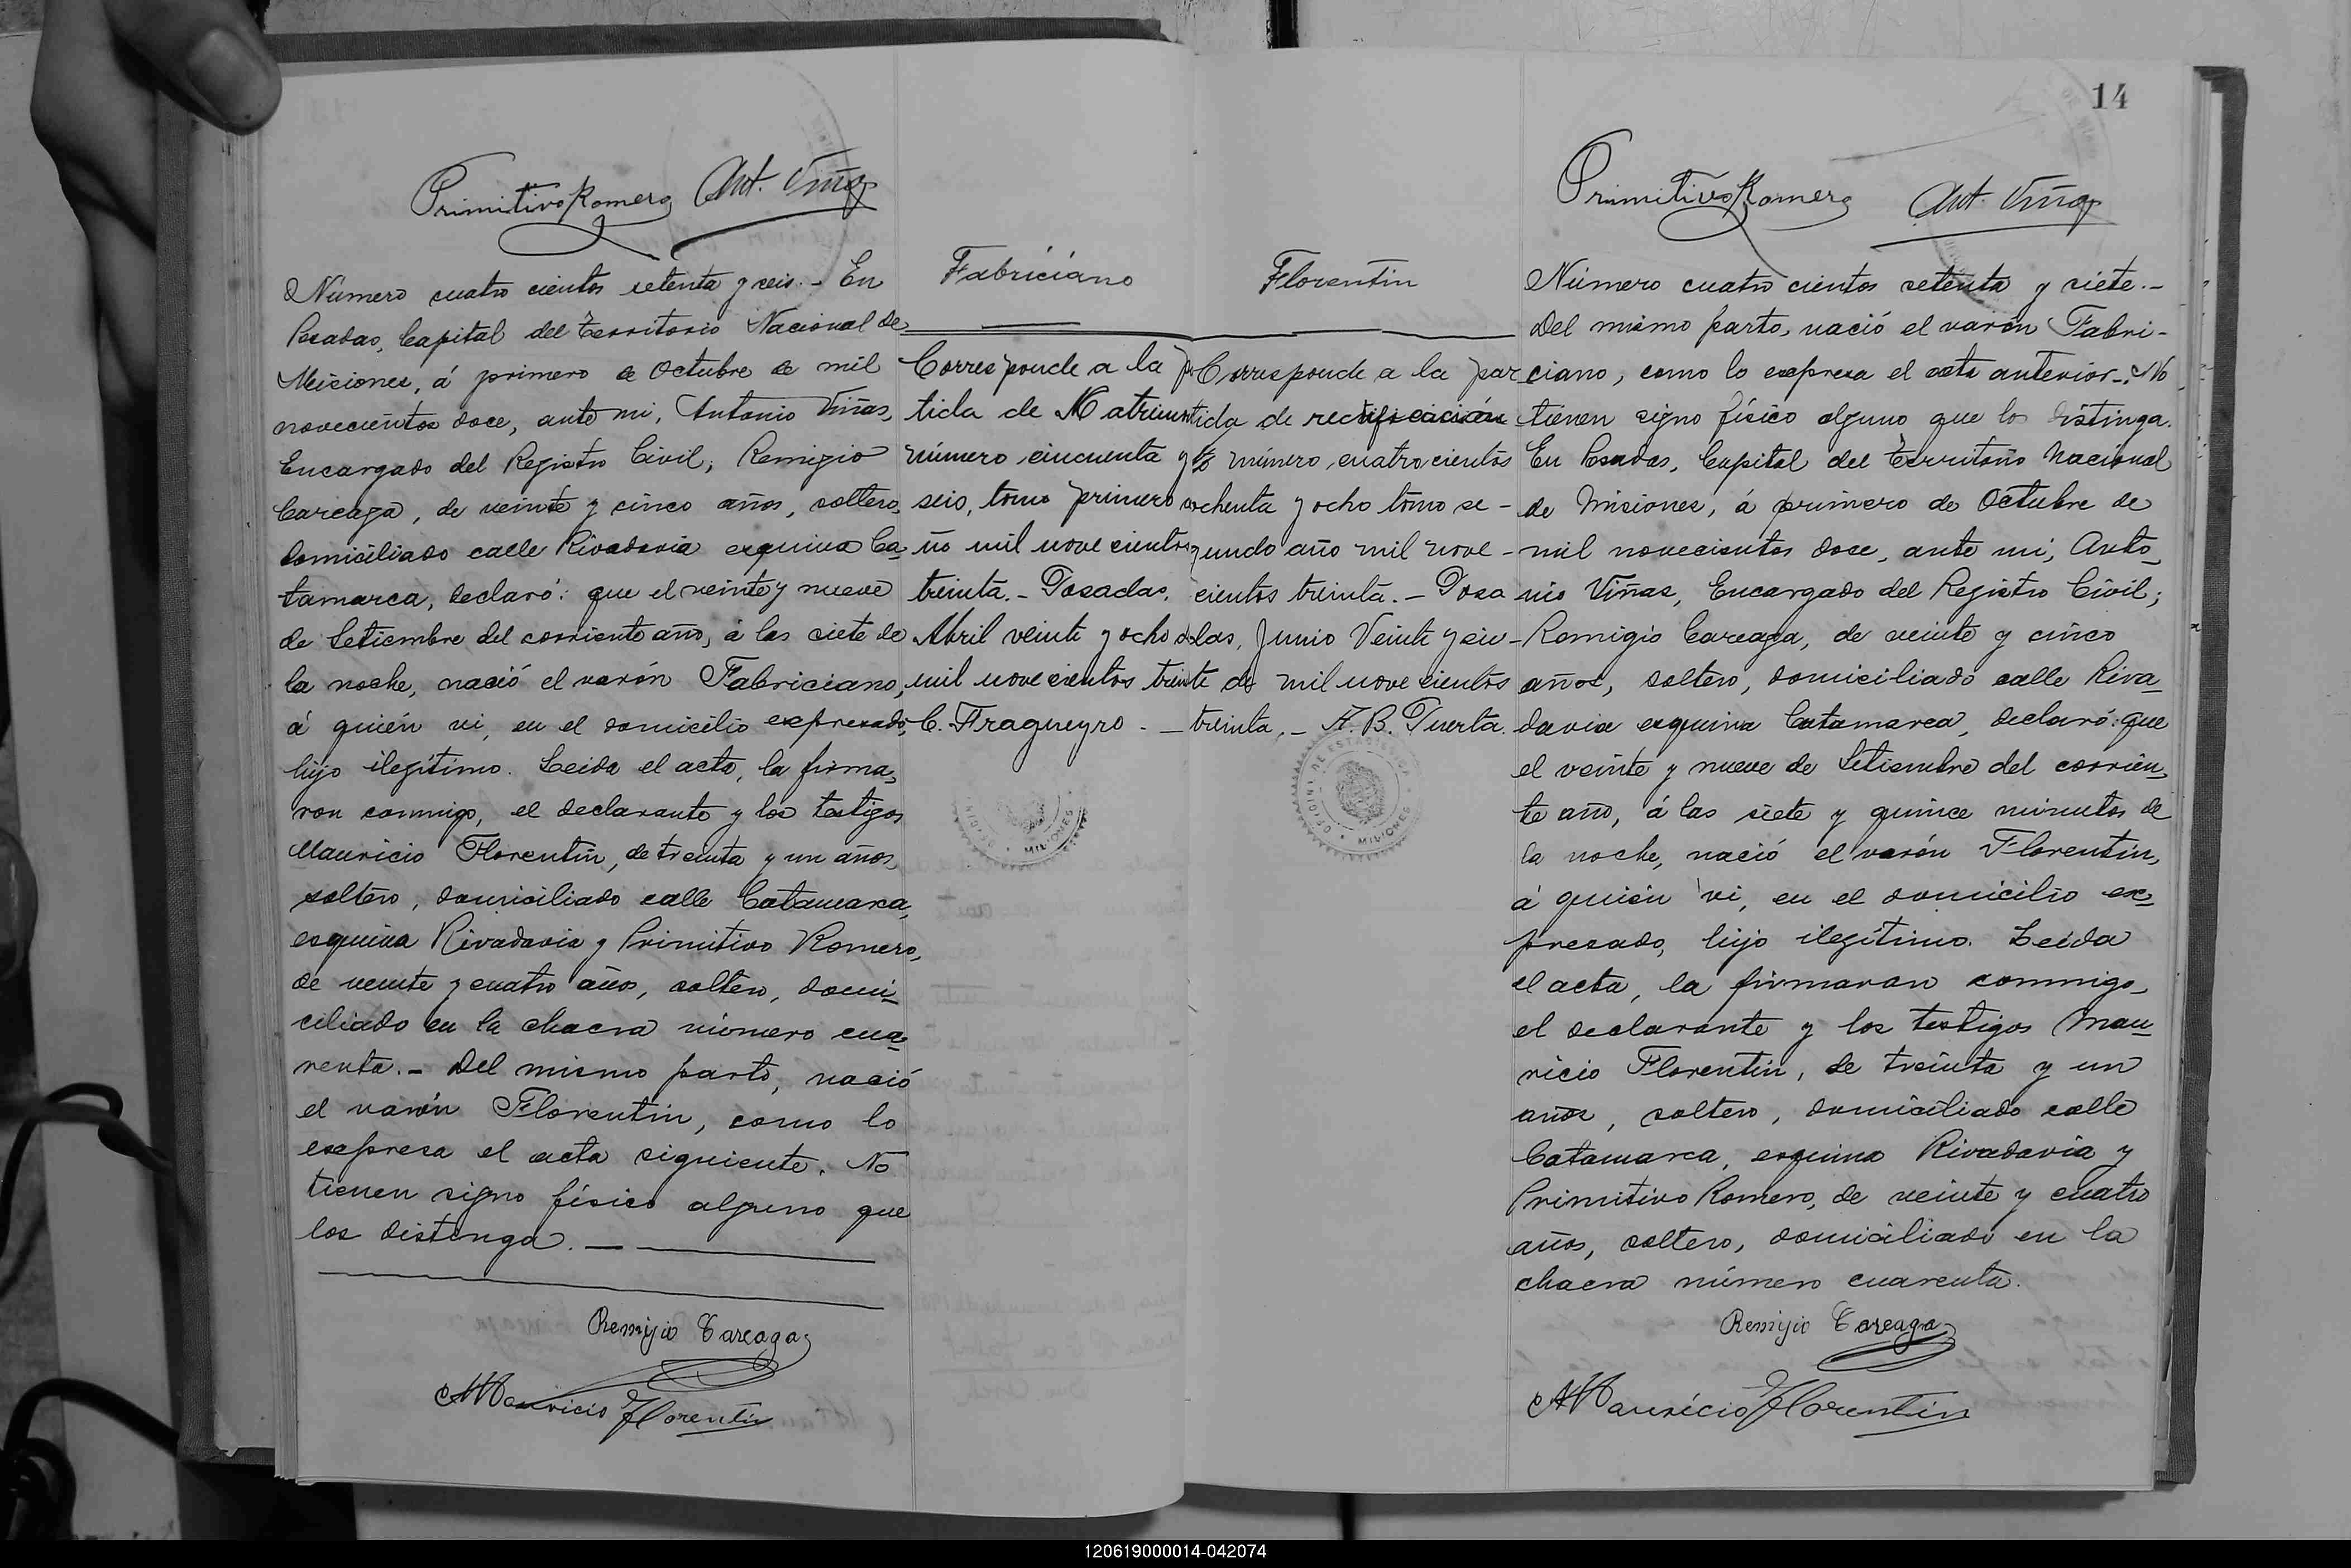 Primitivo Romero Ant. Viñas
Número cuatro cientos setenta y seis. - En
Posadas, Capital del Territorio Nacional de
Misiones, á primero de Octubre de mil
novecientos doce, ante mi, Antonio Viñas,
Encargado del Registro Civil; Remigio
Careaga, de veinte y cinco años, soltero,
domiciliado calle Rivadavia esquina Ca-
tamarca, declaró: que el veinte y nueve
de Setiembre del corriente año, á las siete de
la noche, nació el varón Fabriciano,
á quién vi, en el domicilio expresado,
hijo ilegítimo. Leida el acta, la firma-
ron conmigo, el declarante y los testigos
Mauricio Florentin, de treinta y un años,
soltero, domiciliado calle Catamarca,
esquina Rivadavia y Primitivo Romero,
de veinte y cuatro años, soltero, domi-
ciliado en la chacra número cua-
renta. - Del mismo parto, nació
el varón Florentin, como lo
expresa el acta siguiente. No
tienen signo físico alguno que
los distinga. —
Remijio Careaga
Mauricio Florentin
Fabriciano
Corresponde a la p
tida de Matrimon
número cincuenta y
seis, tomo primero
ño mil nove cientos
treinta. - Posadas,
Abril veinte y ocho d
mil nove cientos treinta
C. Fragueyro. -
MISIONES
Florentin
Corresponde a la par
tida de rectificación
número, cuatro cientos
ochenta y ocho tomo se-
gundo año mil nove-
cientos treinta. - Posa
das, Junio Veinte y cin-
co mil nove cientos
treinta. - A. B. Puerta.
OFICINA DE ESTADISTICA • MISIONES •
14
Primitivo Romero Ant. Viñas
Número cuatro cientos setenta y siete. -
Del mismo parto, nació el varón Fabri-
ciano, como lo expresa el acta anterior. - No
tienen signo físico alguno que los distinga.
En Posadas, Capital del Territorio Nacional
de Misiones, á primero de Octubre de
mil novecientos doce, ante mi, Anto-
nio Viñas, Encargado del Registro Civil;
Remigio Careaga, de veinte y cinco
años, soltero, domiciliado calle Riva-
davia esquina Catamarca, declaró: que
el veinte y nueve de Setiembre del corrien-
te año, á las siete y quince minutos de
la noche, nació el varón Florentin,
á quién vi, en el domicilio ex-
presado, hijo ilegítimo. Leida
el acta, la firmaron conmigo,
el declarante y los testigos Mau-
ricio Florentin, de treinta y un
años, soltero, domiciliado calle
Catamarca, esquina Rivadavia y
Primitivo Romero, de veinte y cuatro
años, soltero, domiciliado en la
chacra número cuarenta.
Remijio Careaga
Mauricio Florentin
120619000014-042074